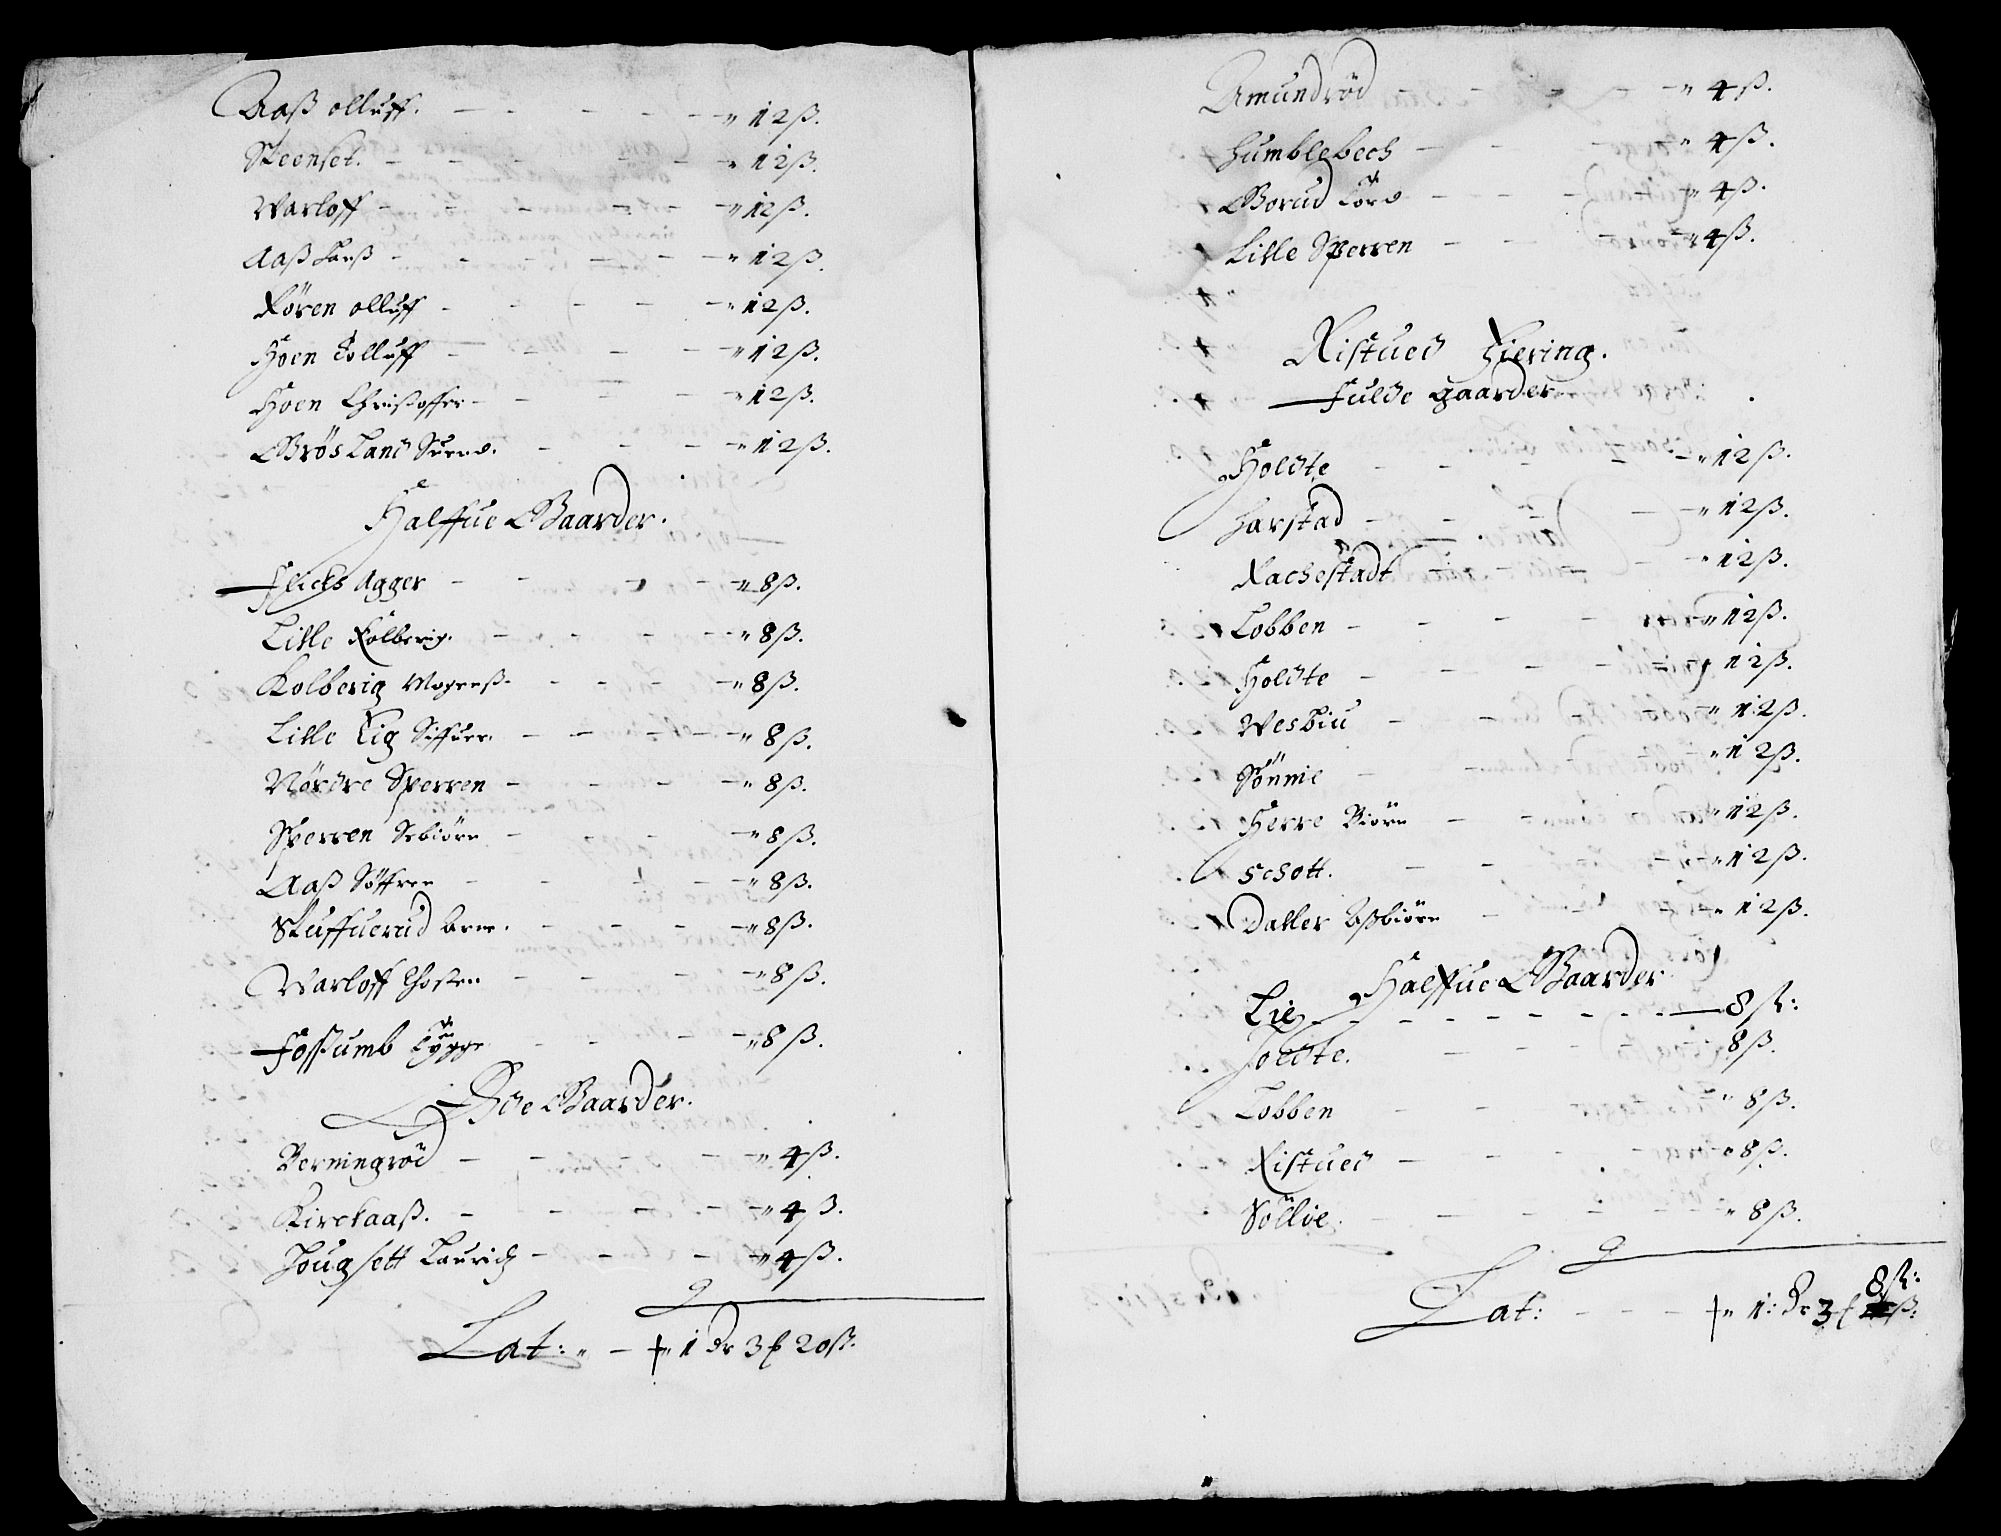 Aaß olluff. - - - - - „ 12 ß.
Steenset. - - - - - „ 12 ß.
Warloff - - - - - „ 12 ß.
Aaß Larß - - - - - „ 12 ß.
Røren olluff - - - - „ 12 ß.
Hoen Tolluff - - - - „ 12 ß.
Hoen Christoffer - - - - „ 12 ß.
Grösland - - - „ 12 ß.
Halffue Gaarder.
Flichs Agger - - - - „ 8 ß.
Litle Kolberig. - - - - „ 8 ß.
Kolberig Mogenß. - - - - „ 8 ß.
Litle Lig Siffuer - - - - „ 8 ß.
Nördre Sperren - - - - „ 8 ß.
Sperren Asbiörn - - - - „ 8 ß.
Aaß Söffren - - - - „ 8 ß.
Stuffuerud Arne. - - - - „ 8 ß.
Warloff - - - - „ 8 ß.
Fossumb Tygge - - - „ 8 ß.
Øde Gaarder.
Berningröd - - - - „ 4 ß.
Kirckaaß. - - - - - „ 4 ß.
Hougsett Lauridz - - - - „ 4 ß.
Lat: „ - „ 1 dr 3 f 20 ß.
Amundröd - - - „ 4 ß.
Humblebech - - - „ 4 ß.
Borud Tord - - - „ 4 ß.
Litle Sperren - - - „ 4 ß.
Ristued Fiering.
Fulde gaarder
Holdte - - - - „ 12 ß.
Harstad - - - - „ 12 ß.
Rachestadt - - - „ 12 ß.
Lobben - - - - „ 12 ß.
Holdte - - - - „ 12 ß.
Wesbiu - - - „ 12 ß.
Sönnie - - - „ 12 ß.
Herre Biörn - - - „ 12 ß.
Schott. - - - „ 12 ß.
Datler Aßbiörn - - - „ 12 ß.
Halffue Gaarder
Lie - - - - - - - 8 ß:
Holdte. - - - 8 ß.
Lobben - - „ 8 ß.
Ristued - - - „ 8 ß.
Söllie. - - - - „ 8 ß.
Lat: - - - „ 1: dr 3 f 8 ß: